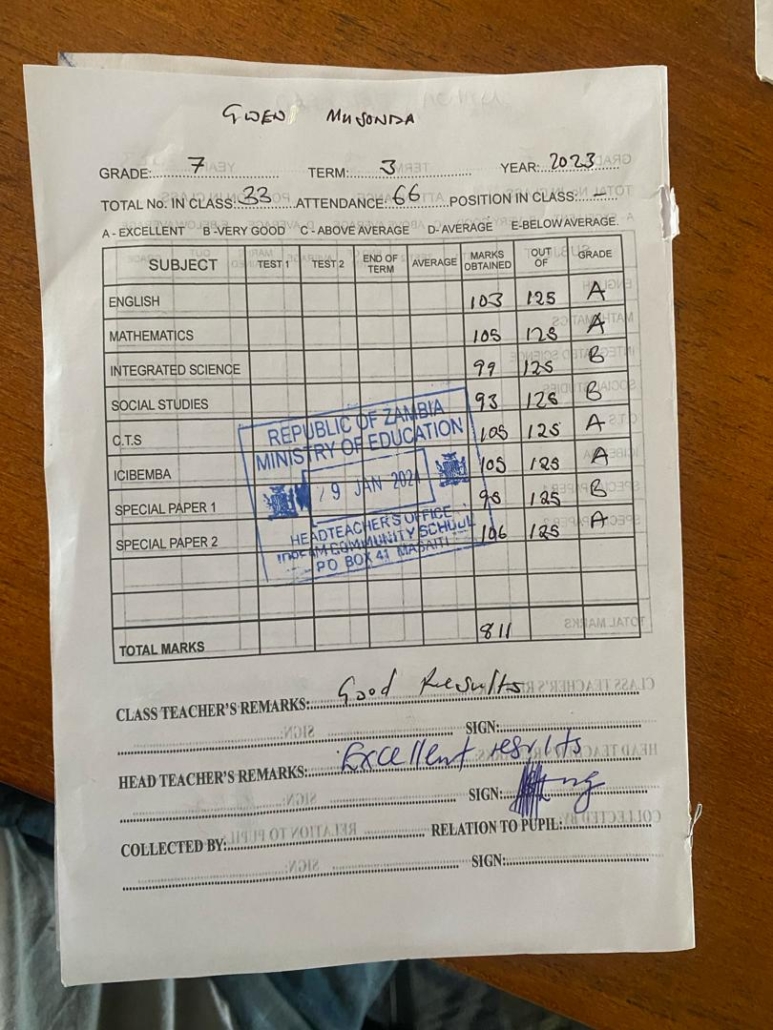 GWEN MUSONDA
GRADE: 7 TERM: 3 YEAR: 2023
TOTAL No. IN CLASS: 33 ATTENDANCE: 66 POSITION IN CLASS: –
A - EXCELLENT B -VERY GOOD C - ABOVE AVERAGE D- AVERAGE E-BELOW AVERAGE.
SUBJECT TEST 1 TEST 2 END OF TERM AVERAGE MARKS OBTAINED OUT OF GRADE
ENGLISH 103 125 A
MATHEMATICS 105 125 A
INTEGRATED SCIENCE 99 125 B
SOCIAL STUDIES 93 125 B
C.T.S 105 125 A
ICIBEMBA 105 125 A
SPECIAL PAPER 1 125 B
SPECIAL PAPER 2 106 125 A
REPUBLIC OF ZAMBIA
MINISTRY OF EDUCATION
9 JAN 2024
HEADTEACHER'S OFFICE
COMMUNITY SCHOOL
PO BOX 41 MASAITI
TOTAL MARKS 811
CLASS TEACHER'S REMARKS: Good Results
SIGN:
HEAD TEACHER'S REMARKS: Excellent results
SIGN:
COLLECTED BY: RELATION TO PUPIL:
SIGN: